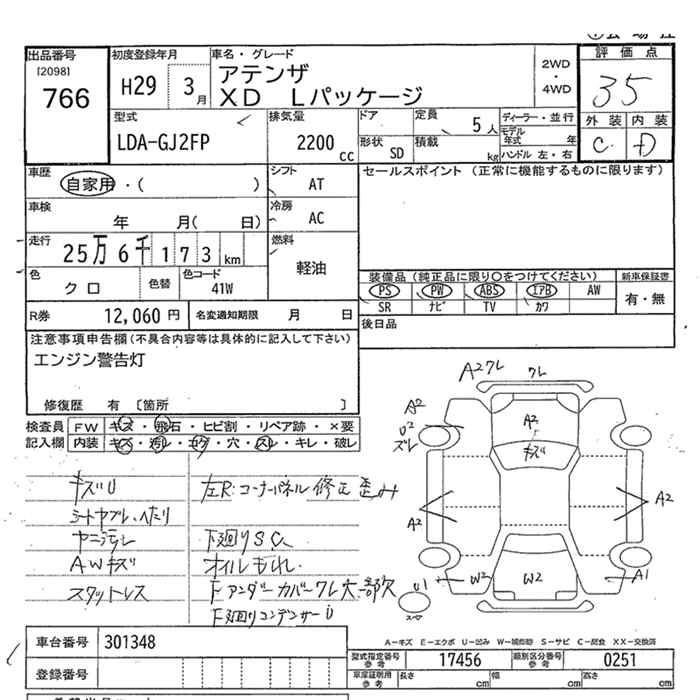 出品番号 初度登録年月 車名・グレード 評価点
[2098]
766
H29 3月
アテンザ
XD Lパッケージ
2WD・4WD
35
型式 排気量 ドア 定員 ディーラー・並行 外装 内装
LDA-GJ2FP 2200cc 5人 モデル年式 年
形状 SD 積載 kg ハンドル 左・右
C D
車歴 シフト セールスポイント (正常に機能するものに限ります)
自家用・( ) AT
車検 冷房
年 月( 日) AC
走行 燃料
25万6千173km 軽油
色 色替 色コード
クロ 41W
装備品 (純正品に限り○をつけてください) 新車保証書
PS PW ABS エアB AW 有・無
SR ナビ TV カワ
R券 12,060円 名変通知期限 月 日
後日品
注意事項申告欄(不具合内容等は具体的に記入して下さい)
エンジン警告灯
修復歴 有 [箇所 ]
検査員 FW キズ・飛石・ヒビ割・リペア跡・×要
記入欄 内装 キズ・汚レ・コゲ・穴・スレ・キレ・破レ
キズU
シートヤブレ、ヘタリ
ヤニ汚レ
AWキズ
スタットレス
左R:コーナーパネル修正歪み
下廻りS.C.
オイルもれ.
Fアンダーカバーワレ大一部欠
F下廻りコンデンサーU
A2ワレ
ワレ
A2
U2
ズレ
A2
キズ
A2
A2
U1
W2
W2
A1
スペア
車台番号 301348
登録番号
A-キズ E-エクボ U-凹み W-補修跡 S-サビ C-腐食 XX-交換済
型式指定番号 参考 17456 類別区分番号 参考 0251
車庫証明用 参考 長さ cm 幅 cm 高さ cm